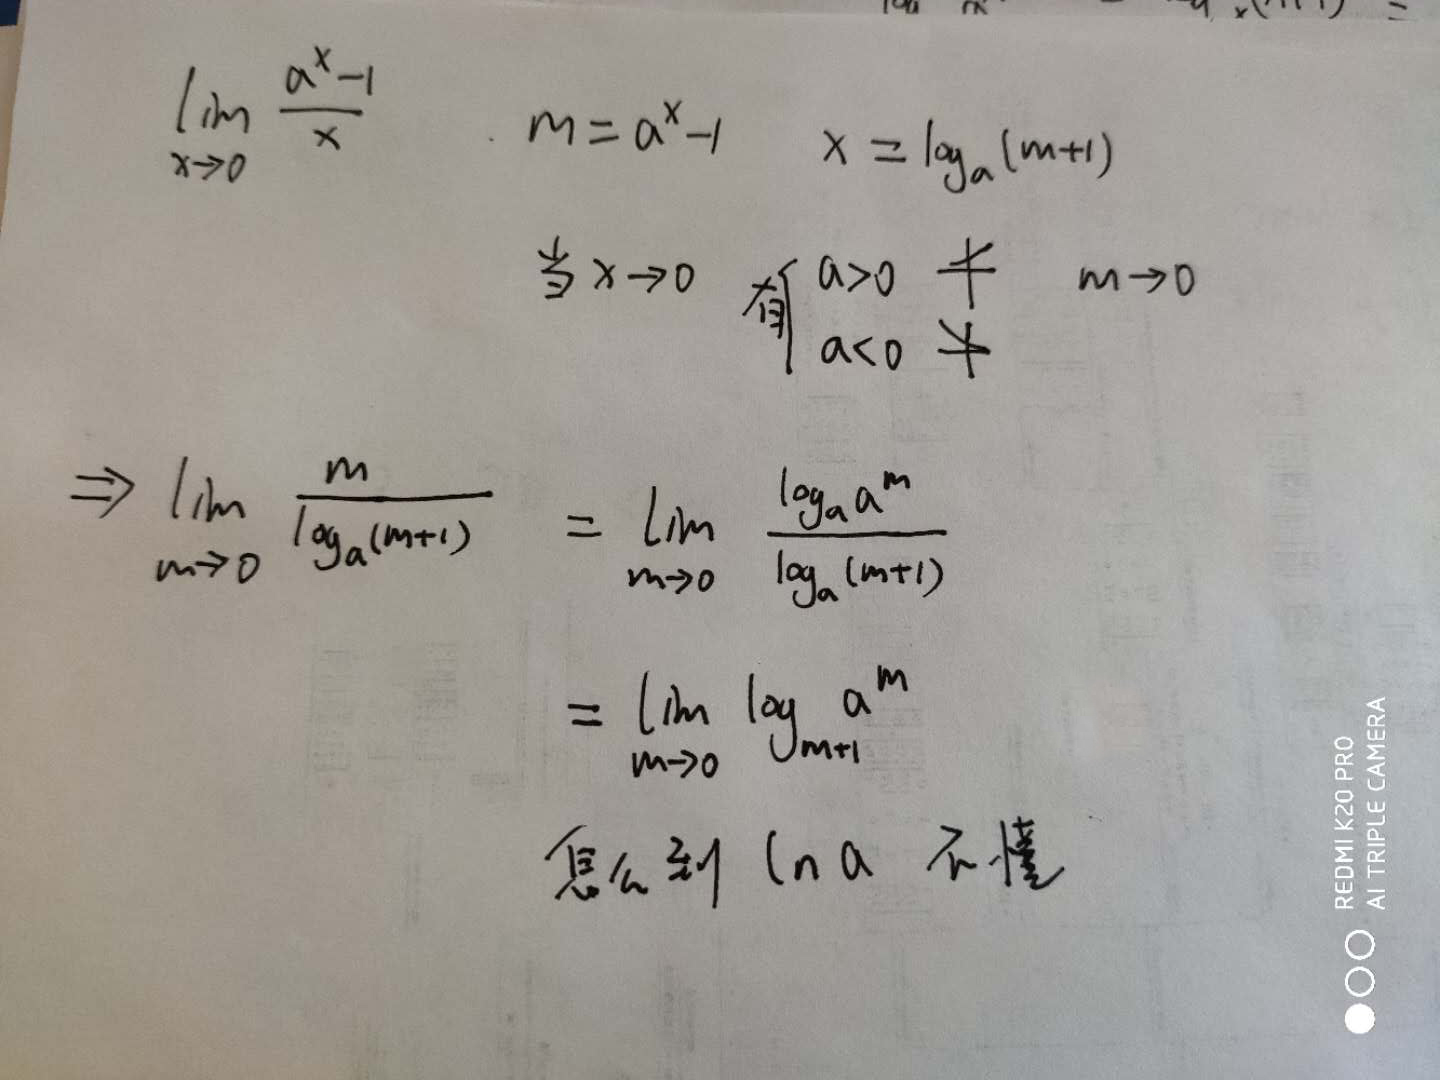 lim x→0 (a^x-1)/x  m=a^x-1  x=log_a(m+1)
当 x→0 有 { a>0  m→0
a<0
⇒ lim m→0 m/log_a(m+1) = lim m→0 log_a a^m/log_a(m+1)
= lim m→0 log_{m+1} a^m
怎么到 ln a 不懂
REDMI K20 PRO
AI TRIPLE CAMERA